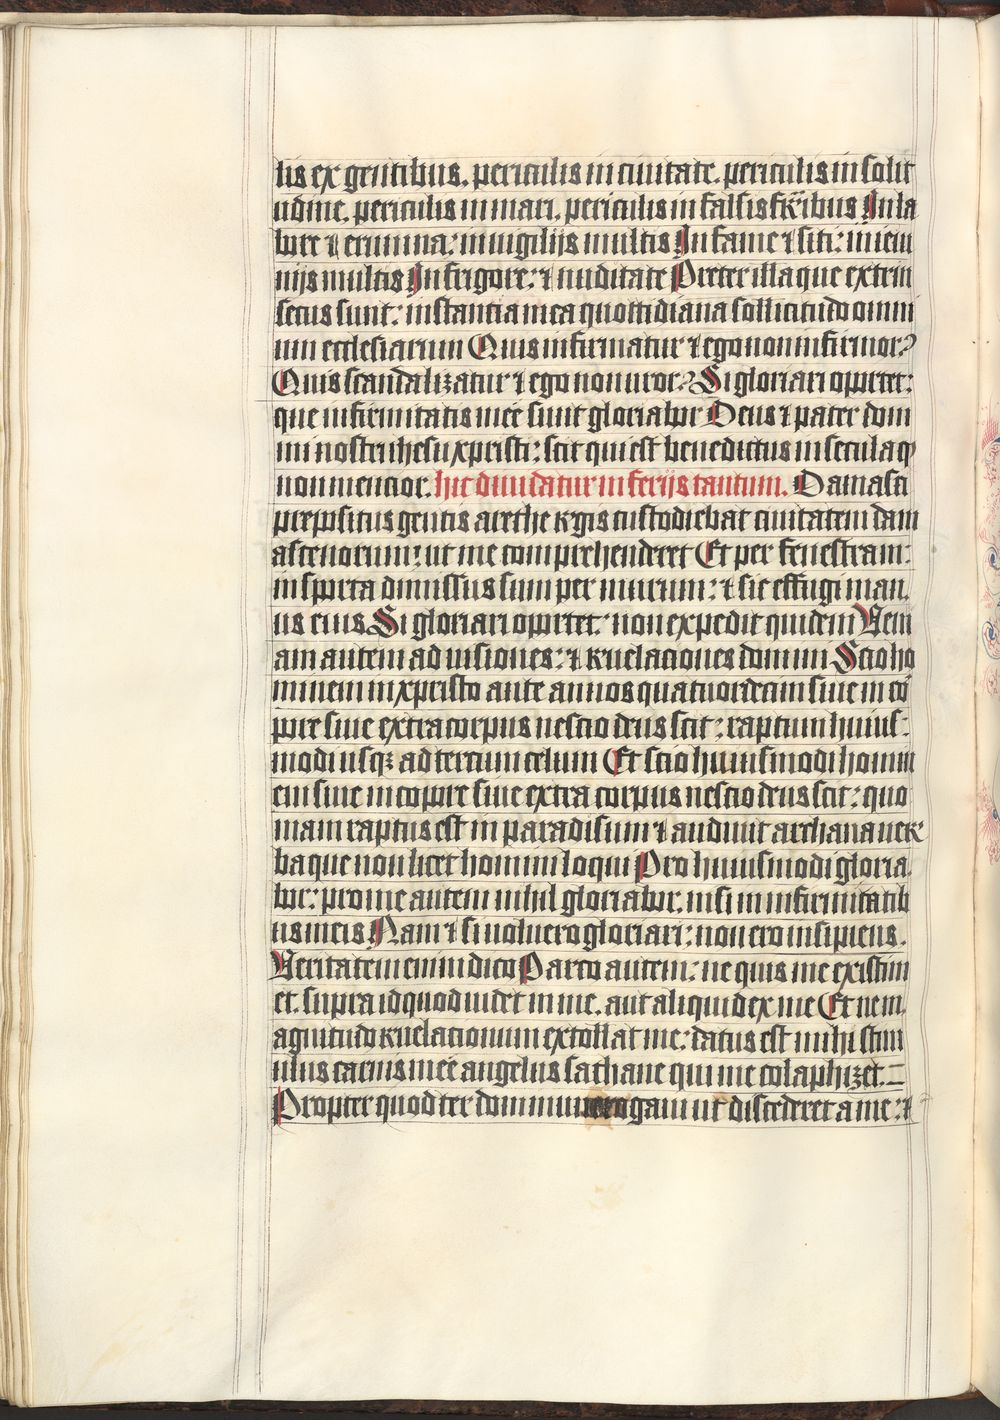 lis ex gentibus. periculis in ciuitate. periculis in solit
udine. periculis in mari. periculis in falsis fratribus In la
bore et erumna: in uigilijs multis In fame et siti: in ieiu
nijs multis In frigore: et nuditate Preter illa que extrin
secus sunt: instantia mea quottidiana sollicitudo omni
um ecclesiarum Quis infirmatur et ego non infirmor?
Quis scandalizatur et ego non uror? Si gloriari oportet:
que infirmitatis mee sunt gloriabor Deus et pater dom
ini nostri ihesu xpristi: scit qui est benedictus in secula qͥ
non mencior. hic diuidatur in ferijs tantum. Damasci
prepositus gentis arethe regis custodiebat ciuitatem dam
ascenorum: ut me comprehenderet Et per fenestram:
in sporta dimissus sum per murum: et sic effugi man
us eius Si gloriari oportet: non expedit quidem Veni
am autem ad uisiones: et reuelaciones domini Scio ho
minem in xpristo ante annos quatuordecim siue in cor
pore siue extra corpus nescio deus scit: raptum huius-
modi usqꝫ ad tercium celum Et scio huiusmodi homin
em siue in corpore siue extra corpus nescio deus scit: quo
niam raptus est in paradisum et audiuit archana uer
ba que non licet homini loqui Pro huiusmodi gloria
bor: pro me autem nihil gloriabor. nisi in infirmitatib
us meis Nam et si uoluero gloriari: non ero insipiens.
Veritatem enim dico Parco autem: ne quis me existim
et. supra id quod uidet in me. aut aliquid ex me Et ne m
agnitudo reuelacionum extollat me: datus est mihi stim
ulus carnis mee angelus sathane qui me colaphizet.
Propter quod ter dominum rogaui ut discederet a me: et